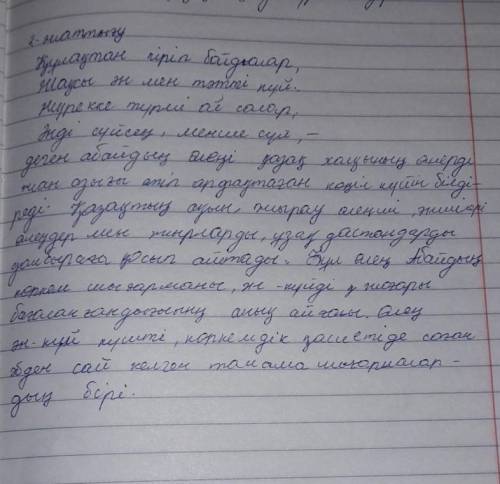 2-жаттығу
Құлақтан кіріп бойды алар,
Жақсы ән мен тәтті күй.
Жүрекке түрлі ой салар,
Әнді сүйсең, менше сүй, –
деген абайдың өлеңі қазақ халқының өнерді
жан азығы етіп ардақтаған көңіл күйін білді-
реді. Қазақтың ақын, жырау әнші
өлеңдер мен жырларды, ұзақ дастандарды
домбыраға қосып айтады. Бұл өлең Абайдың
көркем шығарманы, ән-күйді жоғары
бағалағандығының анық айғағы. Өлең
ән-күй күшті, көркемдік қасиетіде соған
әбден сай келген тамаша шығармалар-
дың бірі.